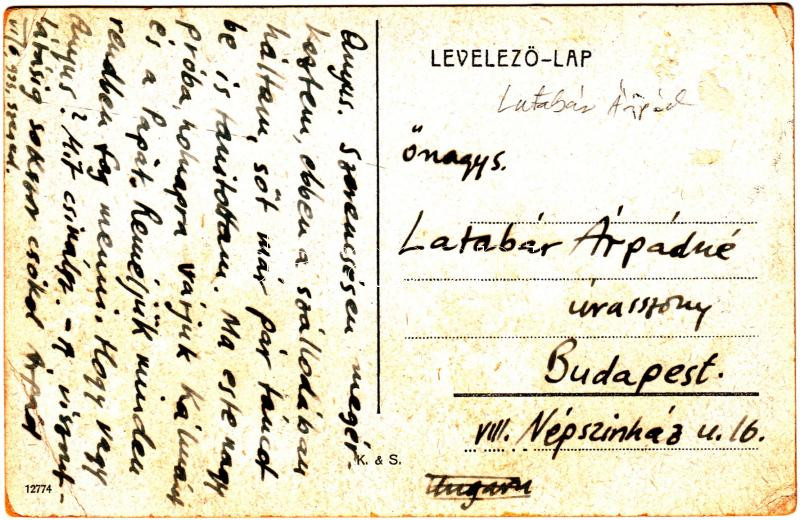 LEVELEZŐ-LAP
Latabár Árpád
Őnagys.
Latabár Árpádné
úrasszony
Budapest.
VIII. Népszinház u. 16.
Hungaria
K. & S.
12774
Anyus. Szerencsésen megér-
keztem, ebben a szállodában
háltam, sőt már pár táncot
be is tanitottam. Ma este nagy
próba, holnapra várjuk Kálmánt
és a Papát. Reméljük minden
rendben fog menni. Hogy vagy
Anyus? Mit csinálsz. – A viszont-
látásig sokszor csókol Árpád